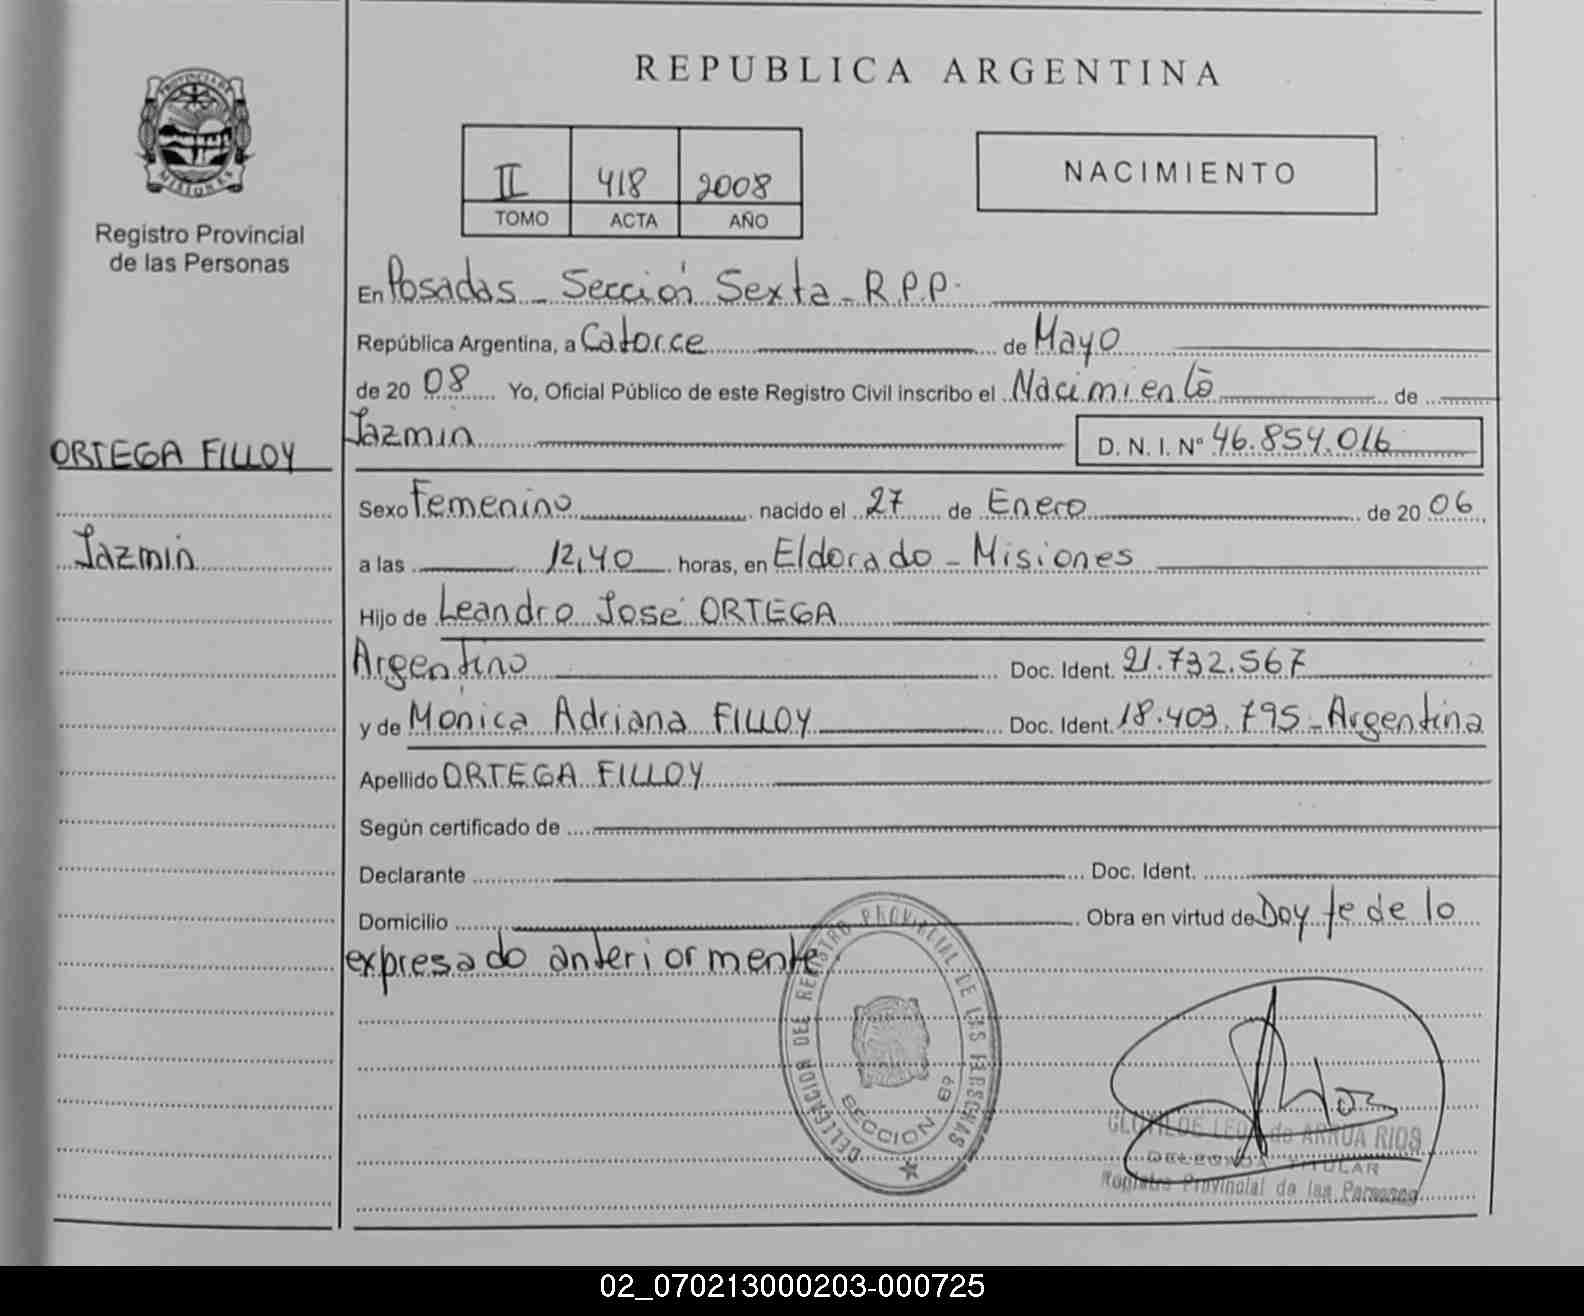 REPUBLICA ARGENTINA
PROVINCIA DE
MISIONES
Registro Provincial
de las Personas
II 418 2008
TOMO ACTA AÑO
NACIMIENTO
En Posadas - Sección Sexta - R.P.P.
República Argentina, a Catorce de Mayo
de 20 08 Yo, Oficial Público de este Registro Civil inscribo el Nacimiento de
Jazmin D. N. I. Nº 46.854.016
ORTEGA FILLOY
Jazmin
Sexo Femenino nacido el 27 de Enero de 20 06
a las 12,40 horas, en Eldorado - Misiones
Hijo de Leandro José ORTEGA
Argentino Doc. Ident. 21.732.567
y de Mónica Adriana FILLOY Doc. Ident. 18.403.795 - Argentina
Apellido ORTEGA FILLOY
Según certificado de
Declarante Doc. Ident.
Domicilio Obra en virtud de Doy fe de lo
expresado anteriormente
DELEGACION DEL REGISTRO PROVINCIAL DE LAS PERSONAS
SECCION 6º
de ARRUA RIOS
DELEGADA TITULAR
Registro Provincial de las Personas
02_070213000203-000725